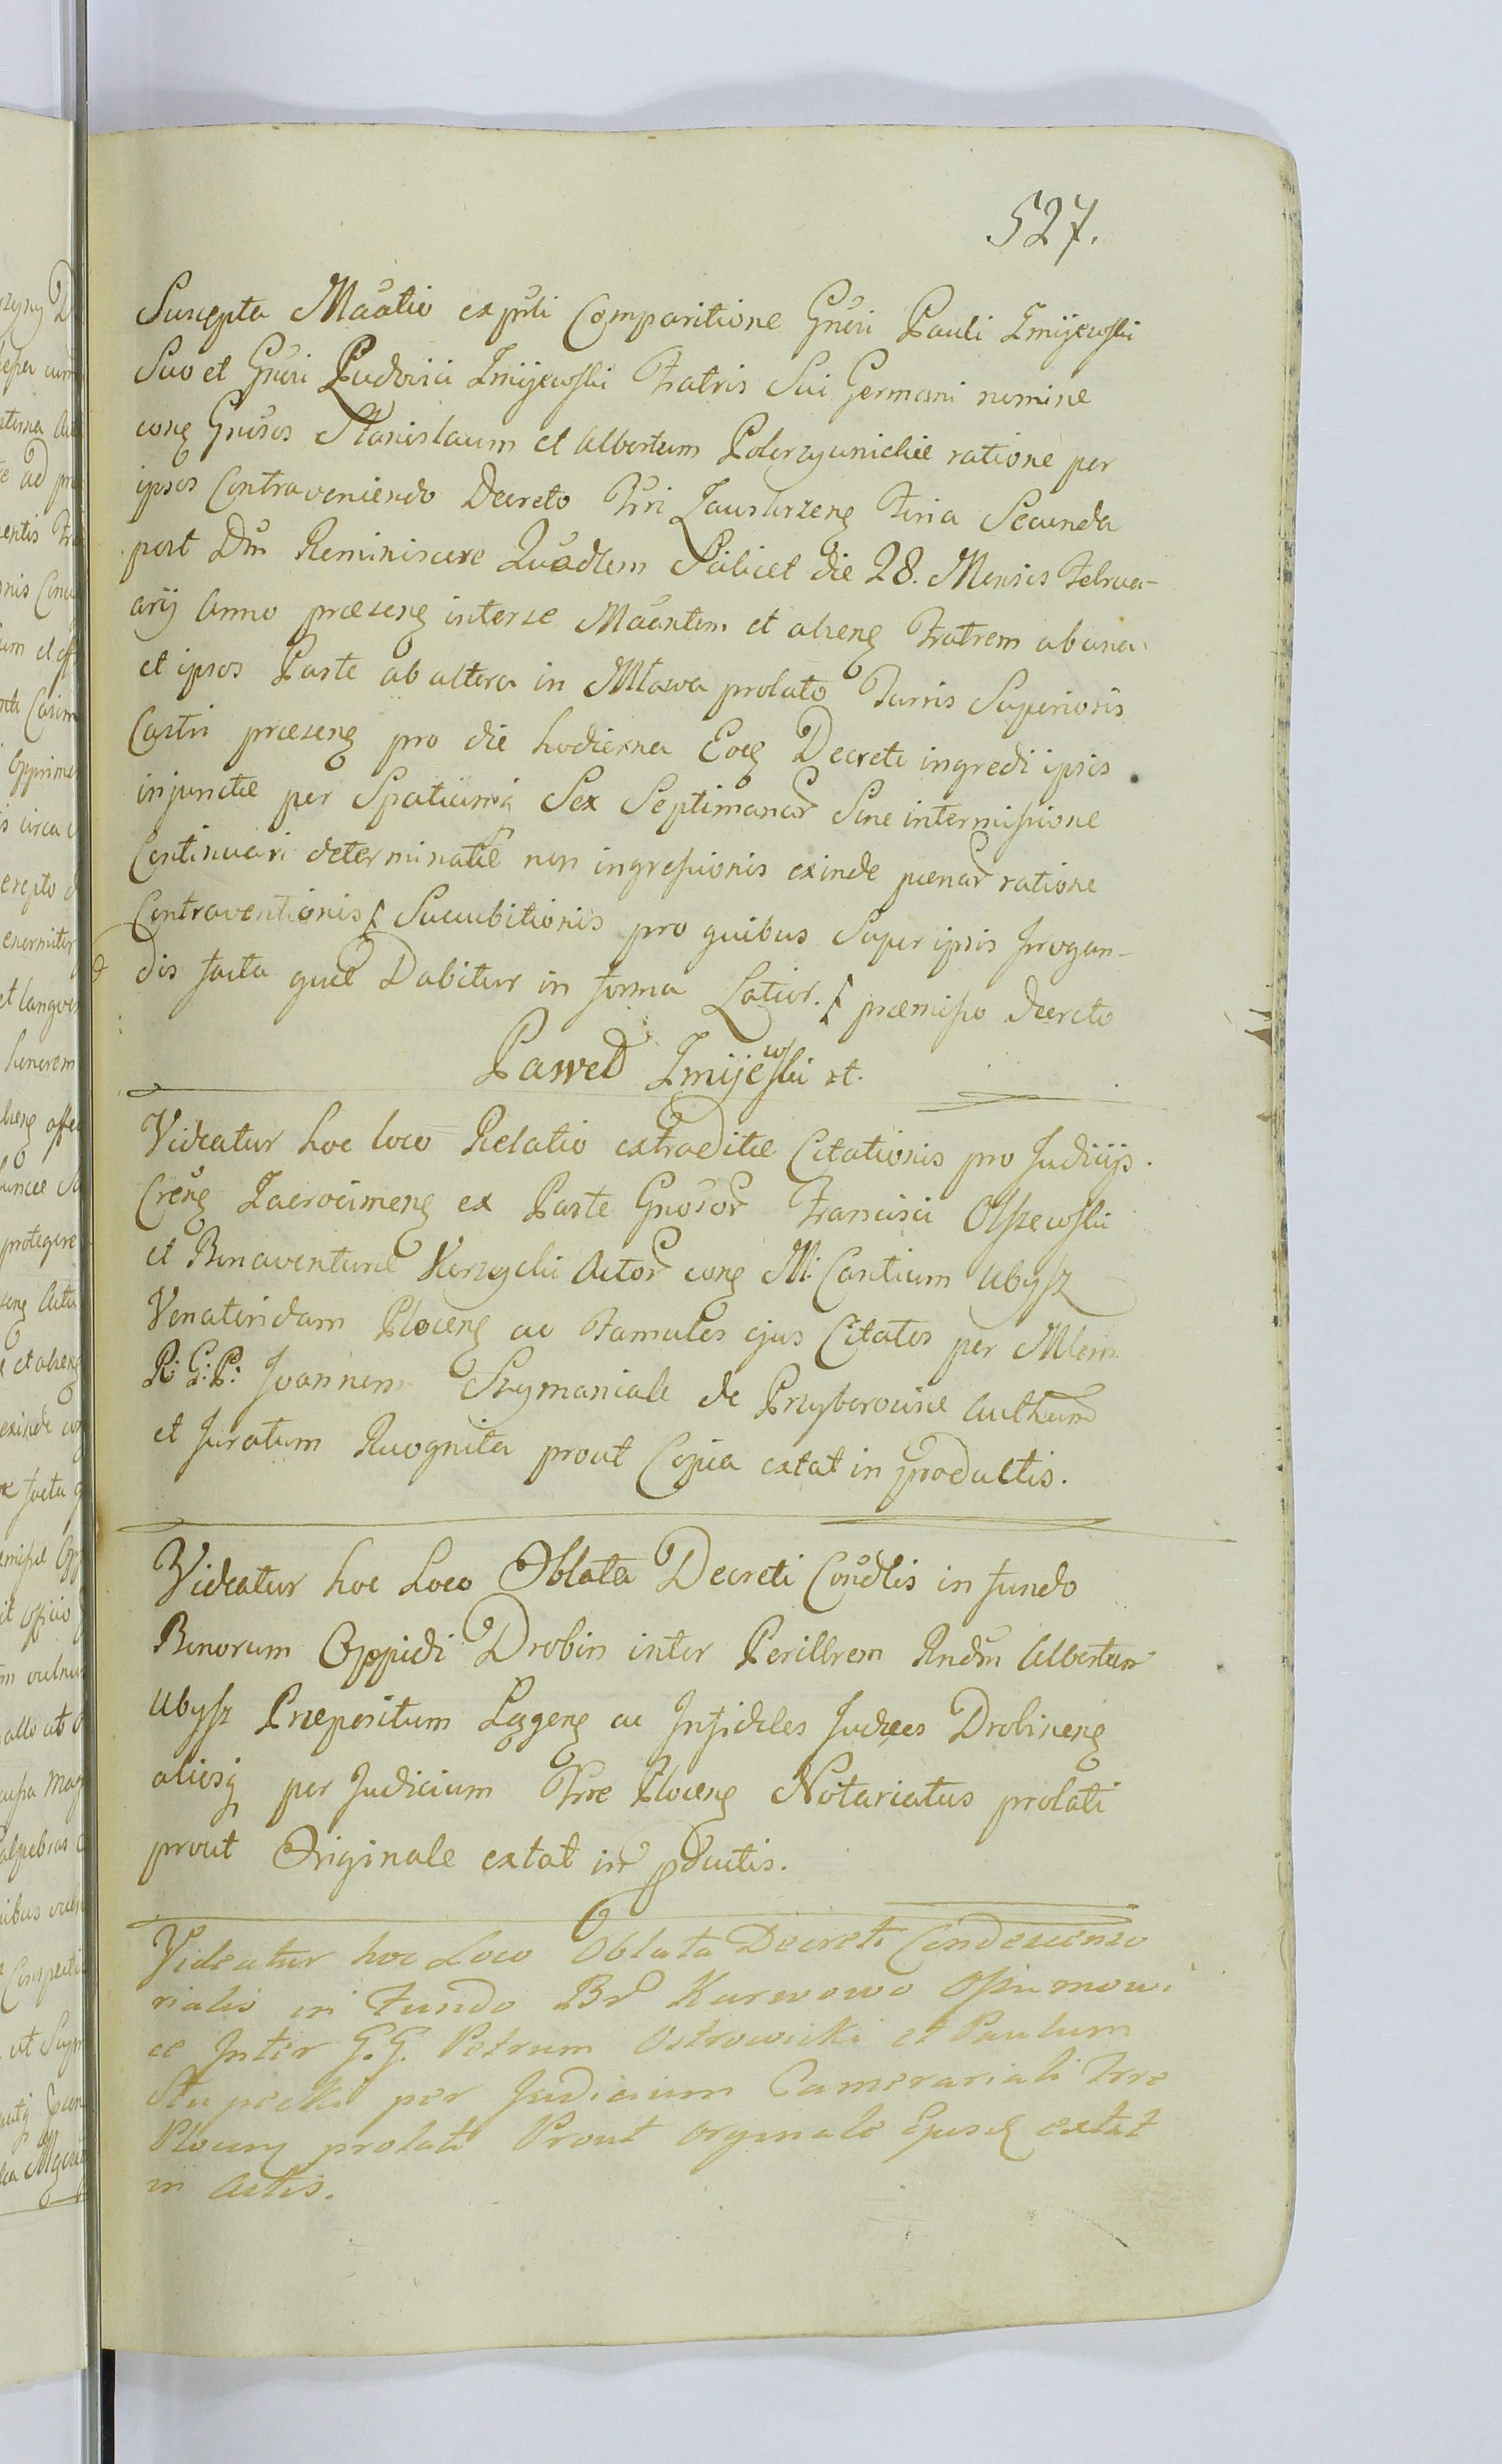 527.
Suscepta Māatio ex pñti Comparitione Gñsi Pauli Zmijewski
Suo et Gñsi Ludovici Zmijewski Fratris Sui Germani nomine
conꝫ Gnosos Stanislaum et Albertum ratione per
ipsos Contraveniendo Decreto Tŕri Zawkrzenꝫ Feria Secunda
post Dm̃ Reminiscere Quadlem Scilicet die 28. Mensis Februa-
arij Anno præsenꝫ inter se Māantem et ahenꝫ Fratrem ab una
et ipsos Parte ab altera in Mlawa prolato Turris Superioris
Castri præsenꝫ pro die hodierna Eoꝗ Decreto ingredi ipsis
injunctæ per Spatiumꝗ Sex Septimanar Sine intermissione
Continuari determinatæ non ingressionis exinde pœnar ratione
Contraventionis ⁊ Succubitionis pro quibus Super ipsis Irrogan-
dis facta quæ Dabitur in forma Latior. ⁊ præmisso Decreto
Paweł Zmijewski rt.
Videatur hoc loco Relatio extraditæ Citationis pro Judicijs
Crenꝫ Zacrocimenꝫ ex Parte Gnosor Francisci Olszewski
et Bonaventuræ Karzycki Actor conꝫ M. Cantium Ubysz
Venatoridam Plocenꝫ ac Famulos ejus Citatos per Mlem
R: G: P: Joannem Szymaniak de Przyborowice Authum
et Juratum Recognita prout Copia extat in productis.
Videatur hoc Loco Oblata Decreti Condlis in fundo
Bonorum Oppidi Drobin inter Perillrem Rndm Albertum
Ubysz Præpositum Łęgenꝫ ac Infideles Judæos Drobinenꝫ
aliosꝗ per Judicium Trræ Plocenꝫ Notariatus prolati
prout Originale extat in pductis.
Videatur hoc Loco Oblata Decreti Condescenso
rialis in Fundo Br Karwowo
ce Inter G. G. Petrum Ostrowicki et Paulum
Słupecki per Judicium Camerariali Trre
Plocenꝫ prolati Prout orginale Ejusꝗ extat
in Actis.